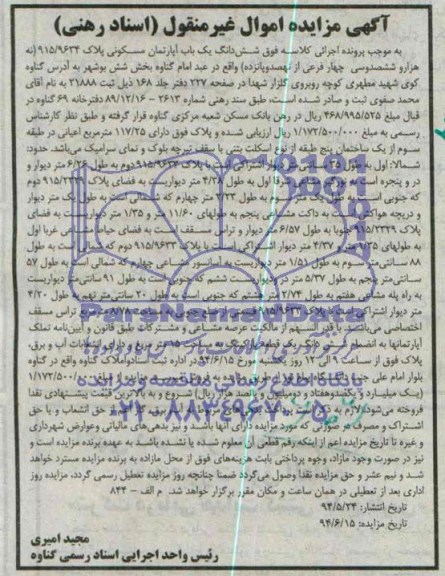 آگهی مزایده اموال غیرمنقول (اسناد رهنی)
به موجب پرونده اجرائی کلاسه فوق شش‌دانگ یک باب آپارتمان مسکونی پلاک ۹۱۵/۹۶۳۴ (نه
هزارو ششصدوسی چهار فرعی از نهصدوپانزده) واقع در عبد امام گناوه بخش شش بوشهر به آدرس گناوه
کوی شهید مطهری کوچه روبروی گلزار شهدا در صفحه ۲۲۷ دفتر جلد ۱۶۸ ذیل ثبت ۲۱۸۸۸ به نام آقای
محمد صفوی ثبت و صادر شده است، طبق سند رهنی شماره ۲۶۱۳ - ۸۹/۱۲/۱۶ دفترخانه ۶۹ گناوه در
قبال مبلغ ۴۶۸/۹۹۵/۵۲۵ ریال در رهن بانک مسکن شعبه مرکزی گناوه قرار گرفته و طبق نظر کارشناس
رسمی به مبلغ ۱/۱۷۲/۵۰۰/۰۰۰ ریال ارزیابی شده و پلاک فوق دارای ۱۱۷/۲۵ مترمربع اعیانی در طبقه
سوم از یک ساختمان پنج طبقه از نوع اسکلت بتنی با سقف تیرچه بلوک و نمای سرامیک می‌باشد. حدود:
شمالا: اول به طول دیوار اشتراکی است با پلاک ۹۱۵/۹۶۳۳ دوم به طول ۶/۲۶ متر دیوار
و در پنجره است به اول به طول ۴/۲۸ متر دیواریست به فضای پلاک دوم
که جنوبی است به طول یک متر به طول ۴/۲۳ متر چهارم که شمالی است به طول یک متر دیوار
و دریچه است به داکت مشاعی پنجم به طولهای ۱۱/۶۰ متر و ۱/۳۵ متر دیواریست به فضای
۹۱۵/۲۳۲۹ جنوبا به طول ۶/۵۷ دیوار و تراس مسقف است به فضای حیاط مشاعی غربا اول
به طولهای و ۴/۳۷ متر دیوار اشتراکی است با پلاک ۹۱۵/۹۶۳۳ دوم که شمالی است به طول
۸۸ سانتی‌متر سوم به طول ۱/۵۱ متر دیواریست به آسانسور مشاعی چهارم که شمالی است به طول ۵۷
سانتی‌متر پنجم به طول ۵/۳۷ متر در دیواریست ششم که جنوبی است به طول ۹۱ سانتی‌متر دیواریست
به راه پله مشاعی هفتم به طول ۲/۷۳ متر هشتم که جنوبی است به طول ۲۰ سانتی‌متر نهم به طول ۴/۲۰
متر دیوار اشتراکی است با پلاک تراس مسقف
اختصاصی می‌باشد با قدرالسهم از مالکیت عرصه مشاعی و مشترکات طبق قانون و آیین‌نامه تملک
آپارتمانها به انضمام آب و برق،
پلاک فوق از ساعت ۹ الی ۱۲ روز یکشنبه مورخ ۹۴/۶/۱۵ در اداره ثبت اسناد و املاک گناوه واقع در گناوه
بلوار امام علی ۱/۱۷۲/۵۰۰/۰۰۰
(یک میلیارد و یکصدوهفتاد و دومیلیون و پانصد هزار ریال) شروع و به بالاترین قیمت پیشنهادی نقدا
فروخته می‌شود لازم به حق انشعاب و یا حق
اشتراک و مصرف در صورتی که مورد مزایده دارای آنها باشد و نیز بدهی‌های مالیاتی وعوارض شهرداری
و غیره تا تاریخ مزایده اعم از اینکه رقم قطعی آن معلوم شده یا نشده باشد به عهده برنده مزایده است و
نیز در صورت وجود مازاد، وجوه پرداختی بابت هزینه‌های فوق از محل مازاده به برنده مزایده مسترد خواهد
شد و نیم عشر و حق مزایده نقدا وصول می‌گردد ضمنا چنانچه روز مزایده تعطیل رسمی گردد، مزایده روز
اداری بعد از تعطیلی در همان ساعت و مکان مقرر برگزار خواهد شد. م الف - ۸۴۴
تاریخ انتشار: ۹۴/۵/۲۴
تاریخ مزایده: ۹۴/۶/۱۵
مجید امیری
رئیس واحد اجرایی اسناد رسمی گناوه
پایگاه اطلاع رسانی مناقصه و مزایده
۰۲۱-۸۸۳۴۹۶۷۰-۵